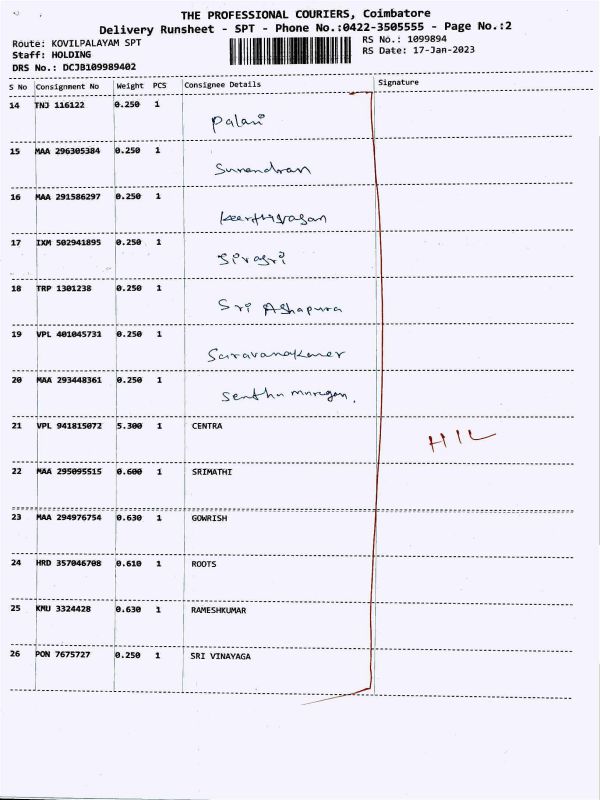 THE PROFESSIONAL COURIERS, Coimbatore
Delivery Runsheet - SPT - Phone No.:0422-3505555 - Page No.:2
Route: KOVILPALAYAM SPT
RS No.: 1099894
Staff: HOLDING
RS Date: 17-Jan-2023
DRS No.: DCJB109989402
S No Consignment No Weight PCS Consignee Details Signature
14 TNJ 116122 0.250 1 Palani
15 MAA 296305384 0.250 1 Surendran
16 MAA 291586297 0.250 1
17 IXM 502941895 0.250 1
18 TRP 1301238 0.250 1 Sri Ashapura
19 VPL 401045731 0.250 1
20 MAA 293448361 0.250 1
21 VPL 941815072 5.300 1 CENTRA HIL
22 MAA 295095515 0.600 1 SRIMATHI
23 MAA 294976754 0.630 1 GOWRISH
24 HRD 357046708 0.610 1 ROOTS
25 KMU 3324428 0.630 1 RAMESHKUMAR
26 PON 7675727 0.250 1 SRI VINAYAGA